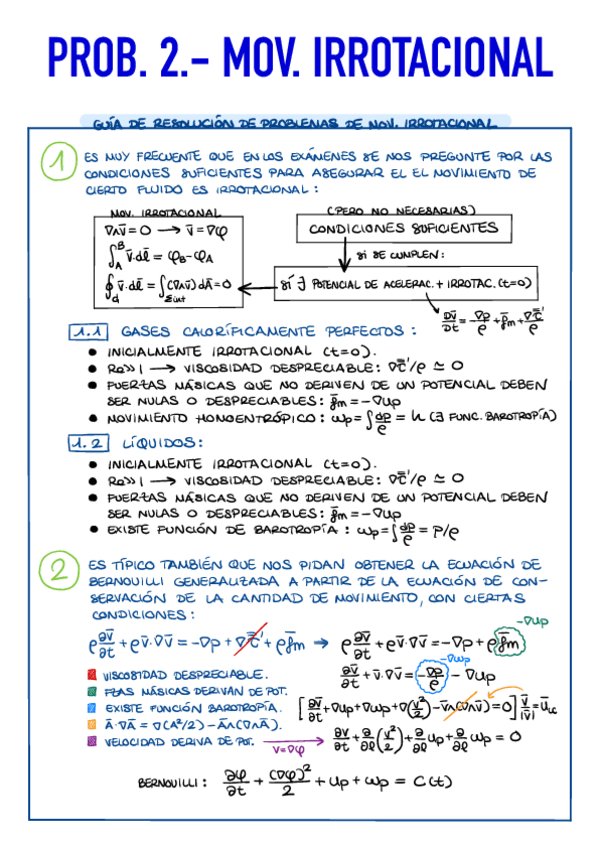 PROB. 2.- MOV. IRROTACIONAL
GUÍA DE RESOLUCIÓN DE PROBLEMAS DE MOV. IRROTACIONAL
1 ES MUY FRECUENTE QUE EN LOS EXÁMENES SE NOS PREGUNTE POR LAS
CONDICIONES SUFICIENTES PARA ASEGURAR EL EL MOVIMIENTO DE
CIERTO FLUIDO ES IRROTACIONAL:
MOV. IRROTACIONAL
∇∧v̄ = 0 → v̄ = ∇φ
∫_A^B v̄·dl̄ = φ_B - φ_A
∮_d v̄·dl̄ = ∫_Σint (∇∧v̄) dĀ = 0
(PERO NO NECESARIAS)
CONDICIONES SUFICIENTES
SI SE CUMPLEN:
SÍ ∃ POTENCIAL DE ACELERAC. + IRROTAC. (t=0)
Dv̄/Dt = -∇p/ρ + f̄m + ∇τ̄'/ρ
1.1 GASES CALORÍFICAMENTE PERFECTOS:
● INICIALMENTE IRROTACIONAL (t=0).
● Re>>1 → VISCOSIDAD DESPRECIABLE: ∇τ̄'/ρ ≃ 0
● FUERZAS MÁSICAS QUE NO DERIVEN DE UN POTENCIAL DEBEN
SER NULAS O DESPRECIABLES: f̄m = -∇Up
● MOVIMIENTO HOMOENTRÓPICO: ωp = ∫dp/ρ = h (∃ FUNC. BAROTROPÍA)
1.2 LÍQUIDOS:
● INICIALMENTE IRROTACIONAL (t=0).
● Re>>1 → VISCOSIDAD DESPRECIABLE: ∇τ̄'/ρ ≃ 0
● FUERZAS MÁSICAS QUE NO DERIVEN DE UN POTENCIAL DEBEN
SER NULAS O DESPRECIABLES: f̄m = -∇Up
● EXISTE FUNCIÓN DE BAROTROPÍA: ωp = ∫dp/ρ = P/ρ
2 ES TÍPICO TAMBIÉN QUE NOS PIDAN OBTENER LA ECUACIÓN DE
BERNOUILLI GENERALIZADA A PARTIR DE LA ECUACIÓN DE CON-
SERVACIÓN DE LA CANTIDAD DE MOVIMIENTO, CON CIERTAS
CONDICIONES:
-∇Up
ρ ∂v̄/∂t + ρv̄·∇v̄ = -∇p + ∇τ̄' + ρf̄m → ρ ∂v̄/∂t + ρv̄·∇v̄ = -∇p + ρf̄m
-∇ωp
VISCOSIDAD DESPRECIABLE.
∂v̄/∂t + v̄·∇v̄ = -∇p/ρ - ∇Up
FZAS MÁSICAS DERIVAN DE POT.
EXISTE FUNCIÓN BAROTROPÍA.
[∂v̄/∂t + ∇Up + ∇ωp + ∇(v²/2) - v̄∧(∇∧v̄) = 0] v̄/|v̄| = ūlc
Ā·∇Ā = ∇(A²/2) - Ā∧(∇∧Ā).
VELOCIDAD DERIVA DE POT. v=∇φ → ∂v/∂t + ∂/∂l (v²/2) + ∂/∂l Up + ∂/∂l ωp = 0
BERNOUILLI: ∂φ/∂t + (∇φ)²/2 + Up + ωp = C(t)